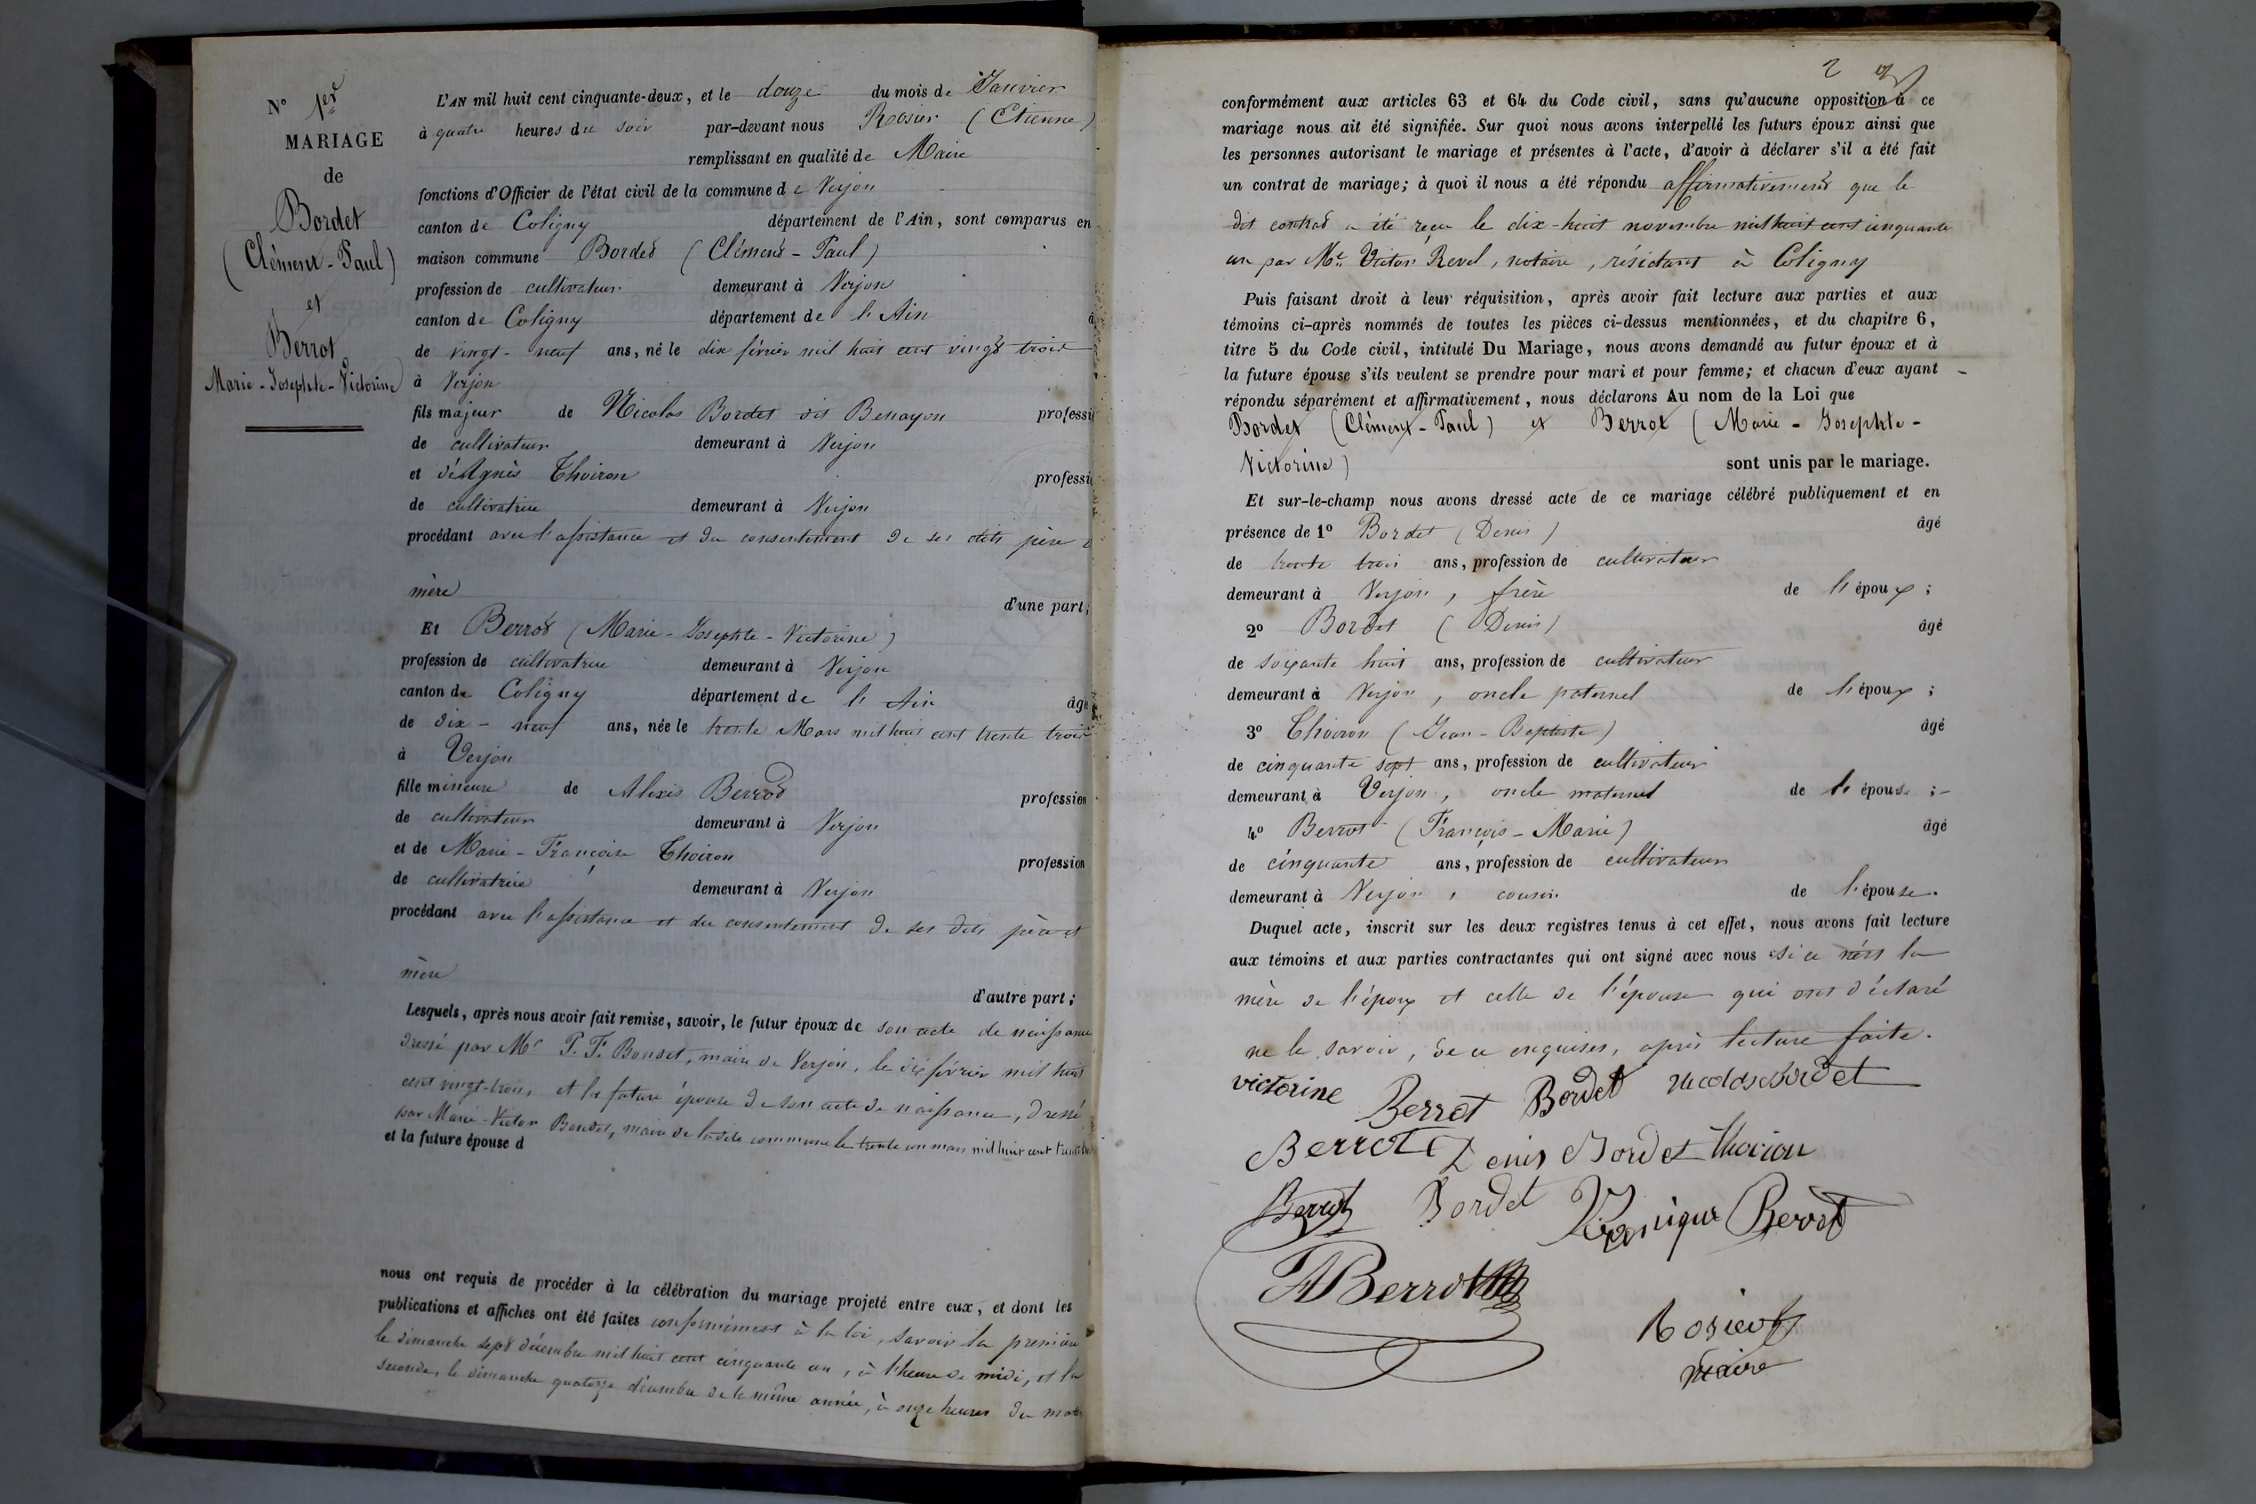 N° 1er
MARIAGE
de
Bordet
(Clément-Paul)
et
Berrot
Marie-Josephte-Victorine
L'AN mil huit cent cinquante-deux, et le douze du mois de Janvier
à quatre heures du soir par-devant nous Rosier (Etienne)
remplissant en qualité de Maire
fonctions d'Officier de l'état civil de la commune de Verjon
canton de Coligny département de l'Ain, sont comparus en
maison commune Bordet (Clément-Paul)
profession de cultivateur demeurant à Verjon
canton de Coligny département de l'Ain â
de vingt-neuf ans, né le dix février mil huit cent vingt trois
à Verjon
fils majeur de Nicolas Bordet dit Benayon professi
de cultivateur demeurant à Verjon
et d'Agnès Thoiron professi
de cultivatrice demeurant à Verjon
procédant avec l'assistance et du consentement de ses dits père e
mère d'une part;
Et Berrot (Marie-Josephte-Victorine)
profession de cultivatrice demeurant à Verjon
canton de Coligny département de l'Ain âgé
de dix-neuf ans, née le trente Mars mil huit cent trente trois
à Verjon
fille mineure de Alexis Berrod profession
de cultivateur demeurant à Verjon
et de Marie-Françoise Thoiron profession
de cultivatrice demeurant à Verjon
procédant avec l'assistance et du consentement de ses dits père et
mère d'autre part;
Lesquels, après nous avoir fait remise, savoir, le futur époux de son acte de naissance
dressé par Mr P. F. Bondet, maire de Verjon, le dix février mil huit
cent vingt-trois, et la future épouse de son acte de naissance, dressé
par Marie-Victor Bondet, maire de ladite commune le trente un mars mil huit cent trente
et la future épouse d
nous ont requis de procéder à la célébration du mariage projeté entre eux, et dont les
publications et affiches ont été faites conformément à la loi, savoir la première
le dimanche sept décembre mil huit cent cinquante un, à l'heure de midi, et la
seconde, le dimanche quatorze décembre de la même année, à onze heures du mat
2
conformément aux articles 63 et 64 du Code civil, sans qu'aucune opposition à ce
mariage nous ait été signifiée. Sur quoi nous avons interpellé les futurs époux ainsi que
les personnes autorisant le mariage et présentes à l'acte, d'avoir à déclarer s'il a été fait
un contrat de mariage; à quoi il nous a été répondu affirmativement que le
dit contrat a été reçu le dix-huit novembre mil huit cent cinquante
un par Me Victor Revel, notaire, résidant à Coligny
Puis faisant droit à leur réquisition, après avoir fait lecture aux parties et aux
témoins ci-après nommés de toutes les pièces ci-dessus mentionnées, et du chapitre 6,
titre 5 du Code civil, intitulé Du Mariage, nous avons demandé au futur époux et à
la future épouse s'ils veulent se prendre pour mari et pour femme; et chacun d'eux ayant
répondu séparément et affirmativement, nous déclarons Au nom de la Loi que
Bordet (Clément-Paul) et Berrot (Marie-Josephte-
Victorine) sont unis par le mariage.
Et sur-le-champ nous avons dressé acte de ce mariage célébré publiquement et en
présence de 1° Bordet (Denis) âgé
de trente trois ans, profession de cultivateur
demeurant à Verjon, frère de l'époux;
2° Bordet (Denis) âgé
de soixante huit ans, profession de cultivateur
demeurant à Verjon, oncle paternel de l'époux;
3° Thoiron (Jean-Baptiste) âgé
de cinquante sept ans, profession de cultivateur
demeurant à Verjon, oncle maternel de l'épouse;-
4° Berrot (François-Marie) âgé
de cinquante ans, profession de cultivateur
demeurant à Verjon, cousin de l'épouse.
Duquel acte, inscrit sur les deux registres tenus à cet effet, nous avons fait lecture
aux témoins et aux parties contractantes qui ont signé avec nous si ce n'est la
mère de l'époux et celle de l'épouse qui ont déclaré
ne le savoir, de ce enquises, après lecture faite.
victorine Berrot Bordet nicolas bordet
Berrot Denis Bordet thoiron
Berrot Bordet Véronique Berrot
Berrot
Rosier
maire